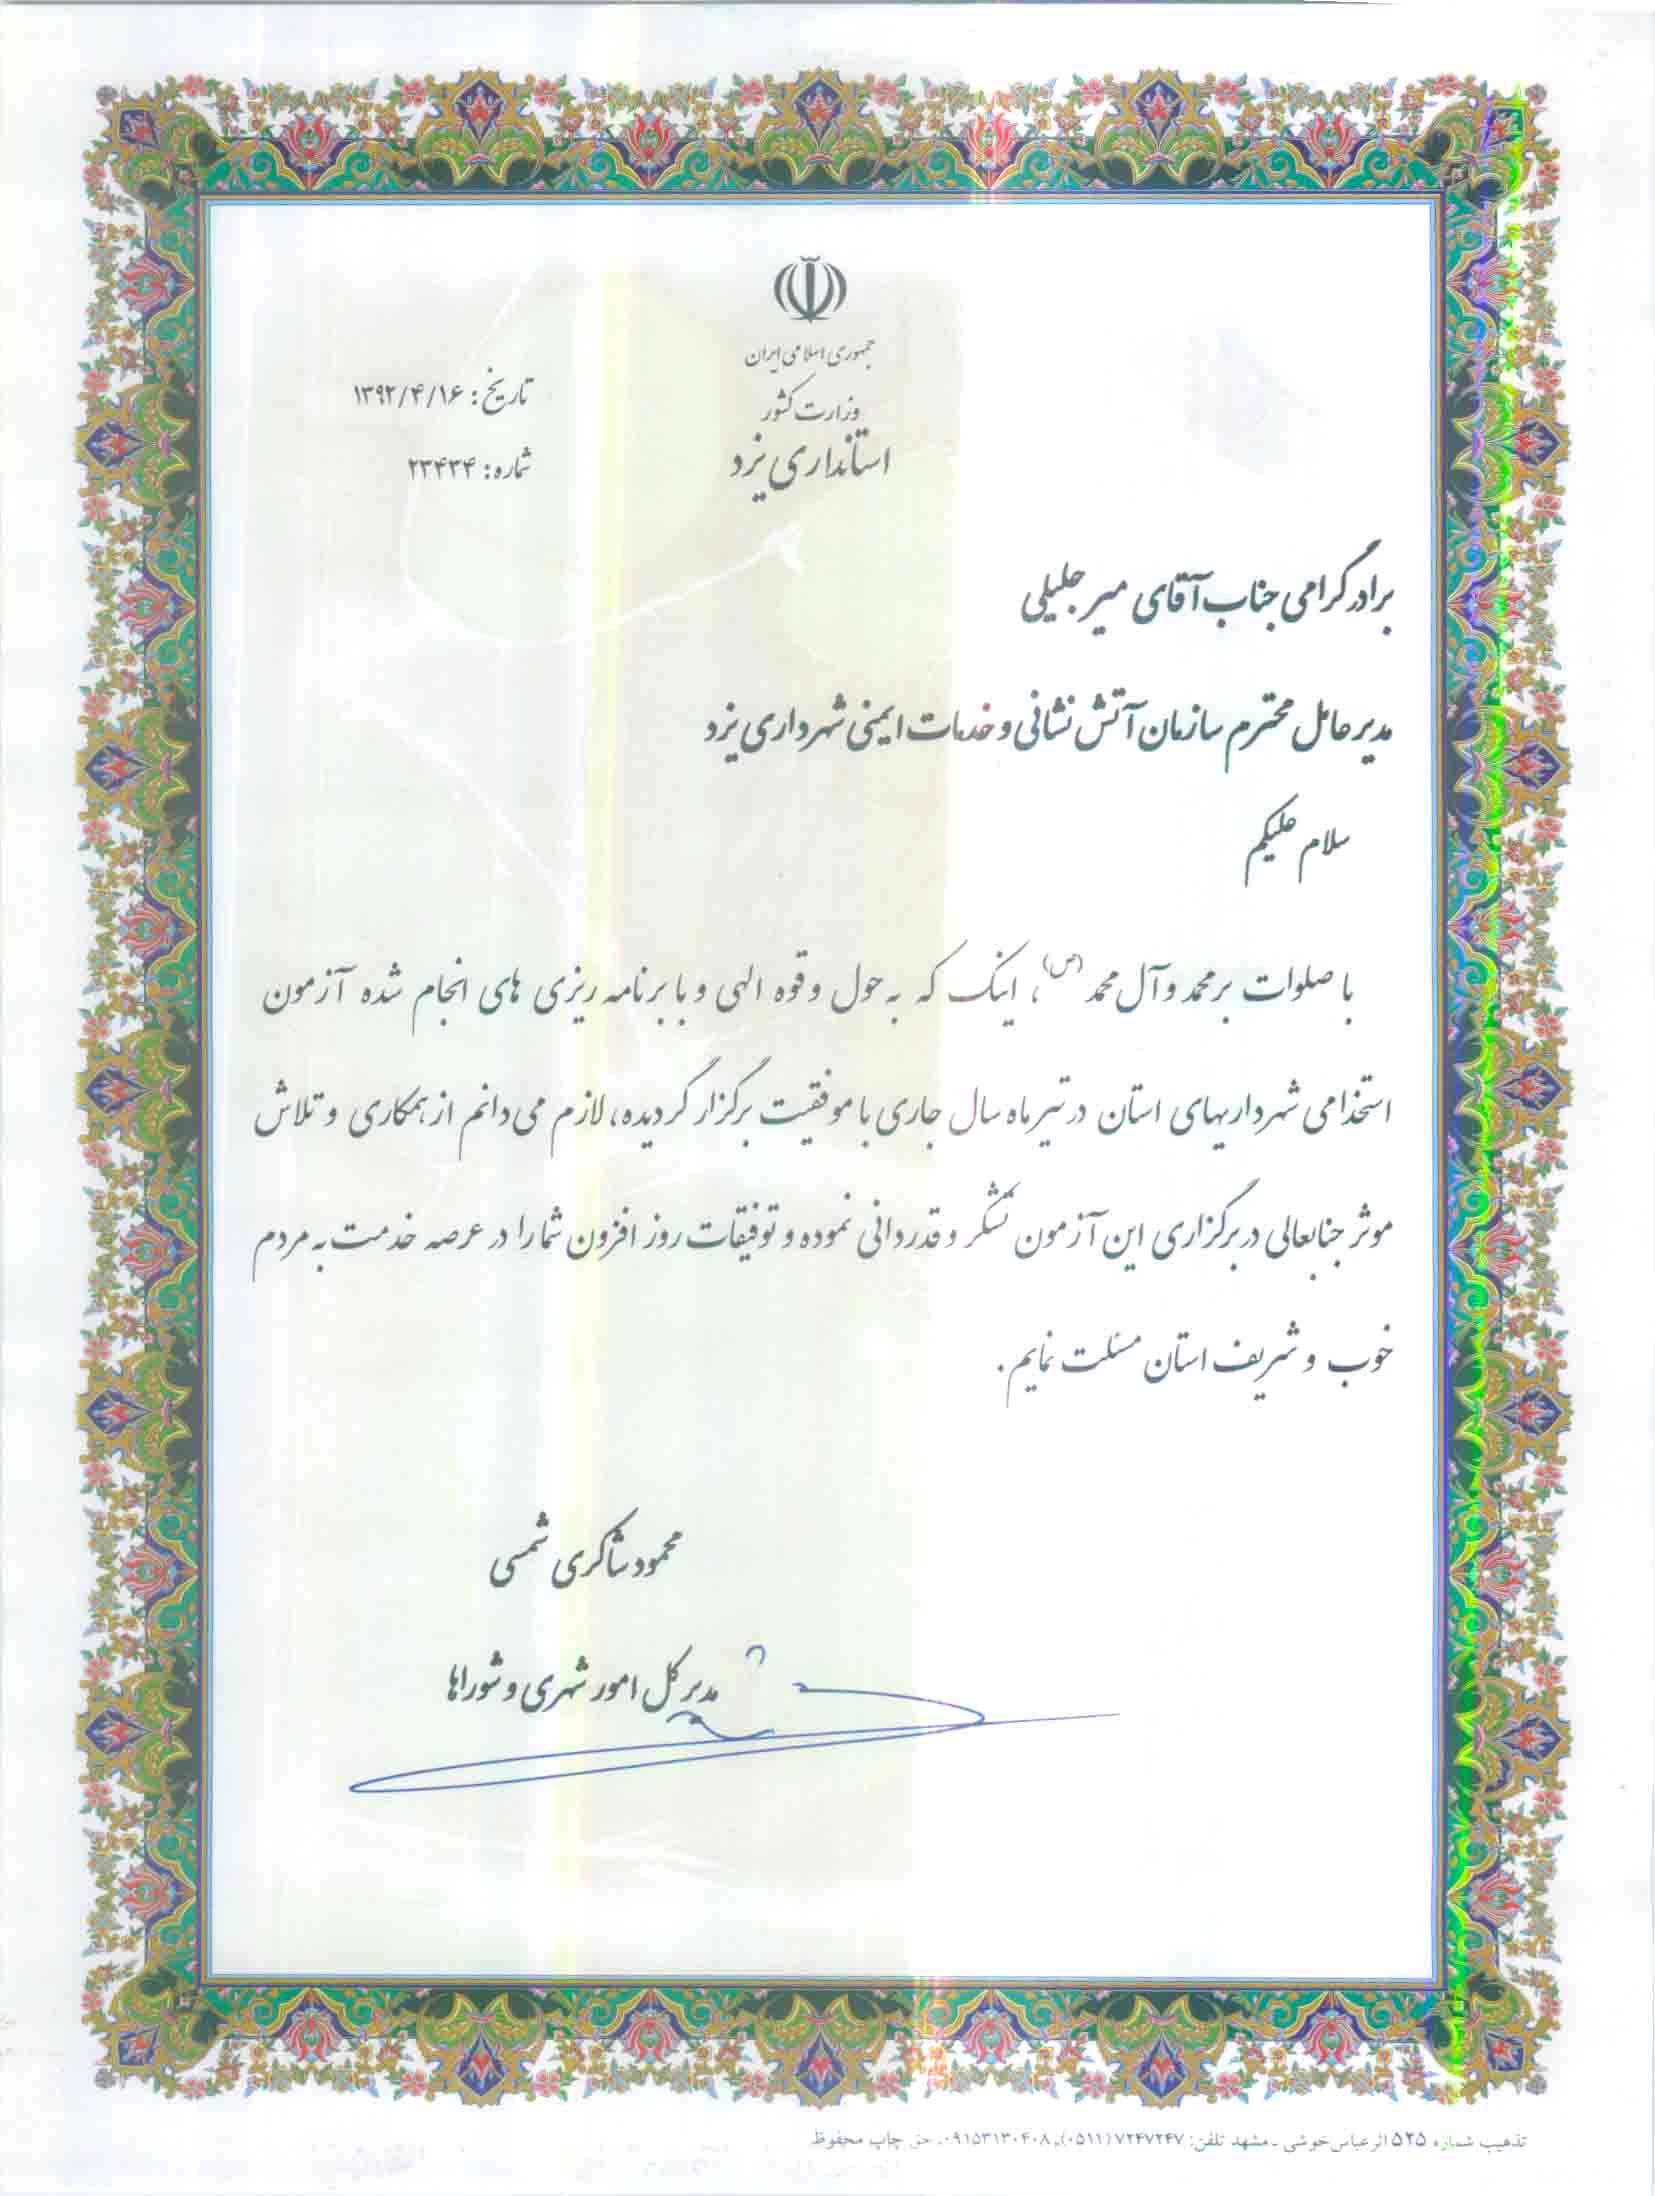 جمهوری اسلامی ایران
وزارت کشور
استانداری یزد
تاریخ: ۱۳۹۲/۴/۱۶
شماره: ۲۳۴۳۴
برادر گرامی جناب آقای میرجلیلی
مدیرعامل محترم سازمان آتش نشانی و خدمات ایمنی شهرداری یزد
سلام علیکم
با صلوات بر محمد و آل محمد (ص)، اینک که به حول و قوه الهی و با برنامه ریزی های انجام شده آزمون
استخدامی شهرداریهای استان در تیرماه سال جاری با موفقیت برگزار گردیده، لازم می دانم از همکاری و تلاش
موثر جنابعالی در برگزاری این آزمون تشکر و قدردانی نموده و توفیقات روز افزون شما را در عرصه خدمت به مردم
خوب و شریف استان مسئلت نمایم.
محمود شاکری شمسی
مدیر کل امور شهری و شوراها
تذهیب شماره ۵۲۵ اثر عباس خوشی ـ مشهد تلفن: ۷۲۴۷۲۴۷ (۰۵۱۱)، ۰۹۱۵۳۱۳۰۴۰۸ـ حق چاپ محفوظ